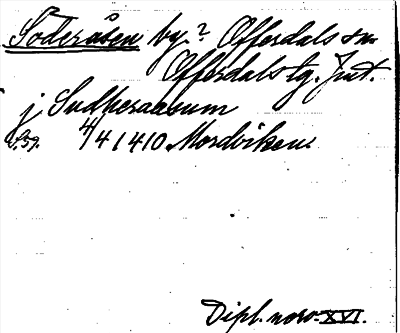 Söderåsen by? Offerdals sn.
Offerdals tg. Jmt.
j Sudheraasum
s. 59. 4/4 1410 Mordviken
Dipl. norv. XVI.